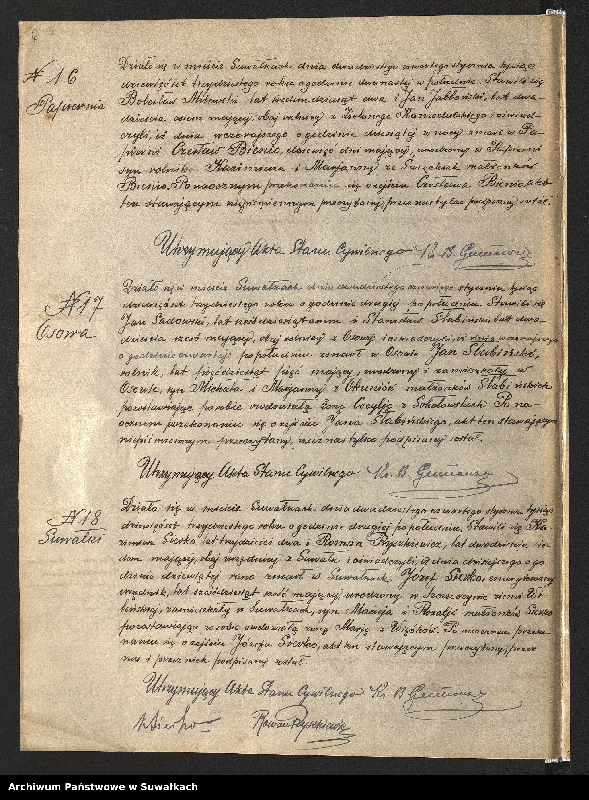 N 16
Papiernia
Działo się w mieście Suwałkach dnia dwudziestego czwartego stycznia tysiąc
dziewięćset trzydziestego roku o godzinie dwunastej w południe. Stawili się
Bolesław lat siedemdziesiąt dwa i Jan Jabłoński, lat dwa-
dzieścia osiem mający, obaj rolnicy z Folwarku Kamedulskiego i oświad-
czyli, iż dnia wczorajszego o godzinie dziesiątej w nocy zmarł w Pa-
pierni Czesław Bienio, dziewięć dni mający, urodzony w Papierni
syn rolnika Kazimierza i Marjanny ze małżonków
Bienio. Po naocznym przekonaniu się o zejściu Czesława Bienio, akt
ten stawającym niepiśmiennym przeczytany, przez nas tylko podpisany został.
Utrzymujący Akta Stanu Cywilnego Ks. B.
N 17
Osowa
Działo się w mieście Suwałkach dnia dwudziestego stycznia tysiąc
dziewięćset trzydziestego roku o godzinie drugiej po południu. Stawili się
Jan Sadowski, lat i Stanisław Słabiński, lat dwa-
dzieścia sześć mający, obaj rolnicy z Osowy i oświadczyli, iż dnia wczorajszego
o godzinie czwartej po południu zmarł w Osowie Jan Słabiński,
rolnik, lat pięćdziesiąt pięć mający, urodzony i zamieszkały w
Osowie, syn Michała i Marjanny z małżonków Słabińskich
pozostawiając po sobie owdowiałą żonę Cecylję z Sokołowskich. Po na-
ocznym przekonaniu się o zejściu Jana Słabińskiego, akt ten stawającym
niepiśmiennym przeczytany, przez nas tylko podpisany został.
Utrzymujący Akta Stanu Cywilnego Ks. B.
N 18
Suwałki
Działo się w mieście Suwałkach, dnia dwudziestego czwartego stycznia tysiąc
dziewięćset trzydziestego roku o godzinie drugiej po południu. Stawili się Ka-
zimierz Sieńko, lat trzydzieści dwa i Roman Ryszkiewicz, lat dwadzieścia sie-
dem mający, obaj urzędnicy z Suwałk i oświadczyli, iż dnia dzisiejszego o go-
dzinie dziewiątej rano zmarł w Suwałkach Józef Sieńko, emerytowany
urzędnik, lat sześćdziesiąt mający, urodzony w Szczuczynie ziemi Wi-
leńskiej, zamieszkały w Suwałkach, syn Macieja i Rozalji małżonków Sieńko
pozostawiając po sobie owdowiałą żonę Marję z. Po naocznem przeko-
naniu się o zejściu Józefa Sieńko, akt ten stawającym przeczytany, przez
nas i przez nich podpisany został.
Utrzymujący Akta Stanu Cywilnego Ks. B.
Roman Ryszkiewicz
Archiwum Państwowe w Suwałkach